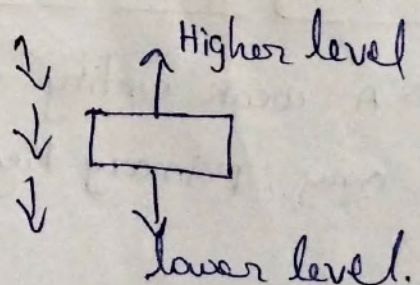 Higher level
lower level.